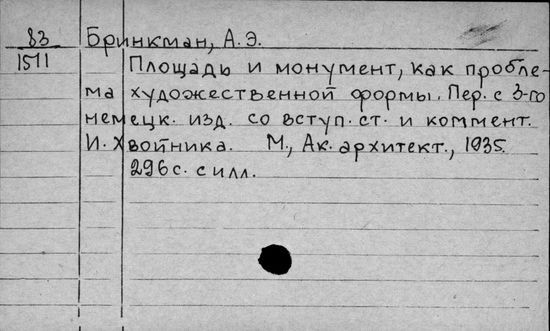 83 Бринкман, А.Э.
1511 Площадь и монумент, как пробле-
ма художественной формы. Пер. с 3-го
немецк. изд. со вступ. ст. и коммент.
И. Хвойника. М., Ак. архитект., 1935.
296 с. с илл.